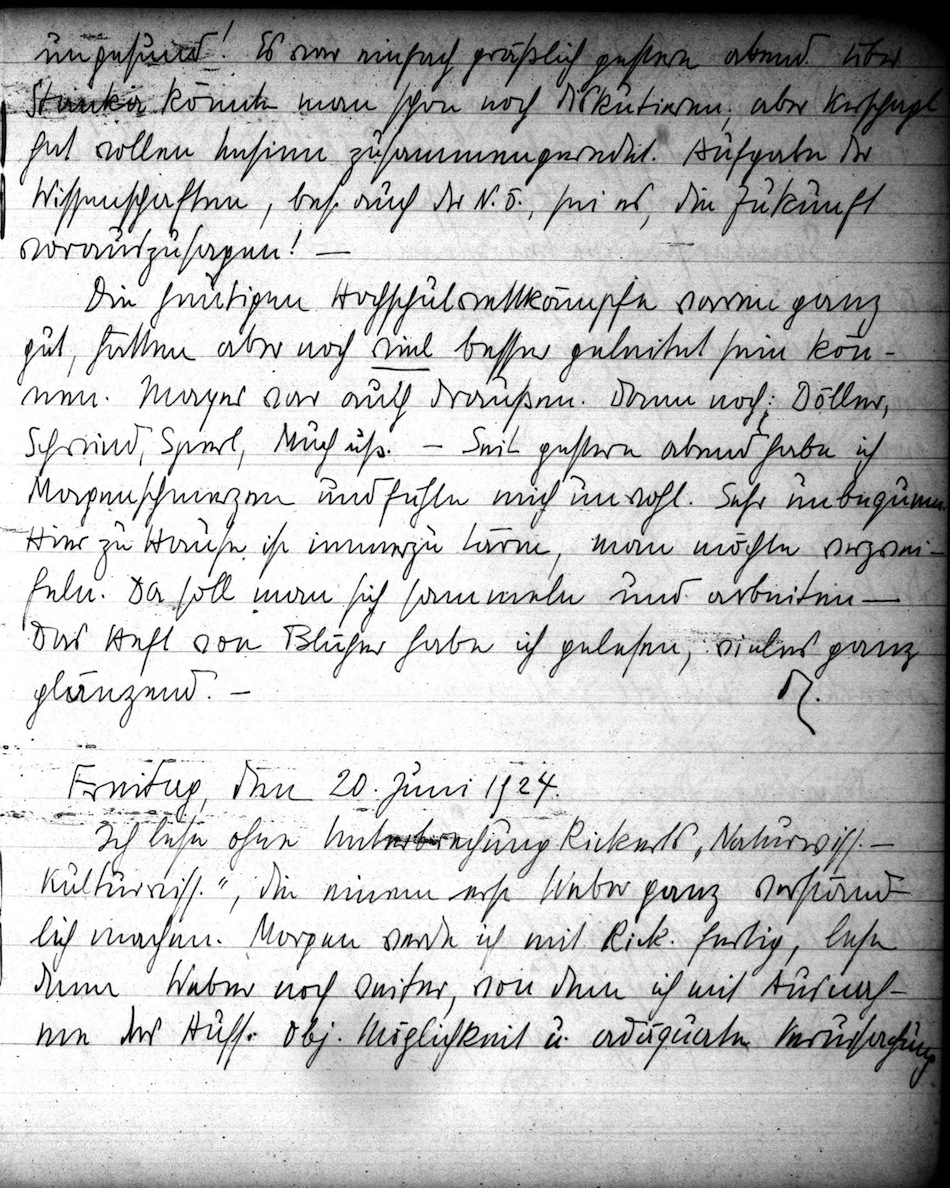 ungesund! Es war einfach gräßlich gestern abend. Über
Stanka könnte man schon noch diskutieren, aber Kerschagl
hat vollen Unsinn zusammengeredet. Aufgabe der
Wissenschaften, bes. auch der N.Ö., sei es, die Zukunft
vorauszusagen! —
Die heutigen Hochschulwettkämpfe waren ganz
gut, hätten aber noch viel besser geleitet sein kön-
nen. Mayer war auch draußen. Dann noch: Döller,
Schreind, Sperl, Much usf. — Seit gestern abend habe ich
Magenschmerzen und fühle mich unwohl. Sehr unbequem.
Hier zu Hause ist immerzu Lärm, man möchte verzwei-
feln. Da soll man sich sammeln und arbeiten —
Das Heft von Blüher habe ich gelesen, vieles ganz
glänzend. —
Freitag, den 20. Juni 1924.
Ich lese ohne Unterbrechung Rickerts „Naturwiss. —
Kulturwiss.", die einem erst Weber ganz verständ-
lich machen. Morgen werde ich mit Rick. fertig, lese
dann Weber noch weiter, von dem ich mit Ausnah-
me des Aufs. Obj. Möglichkeit u. adäquate Verursachung